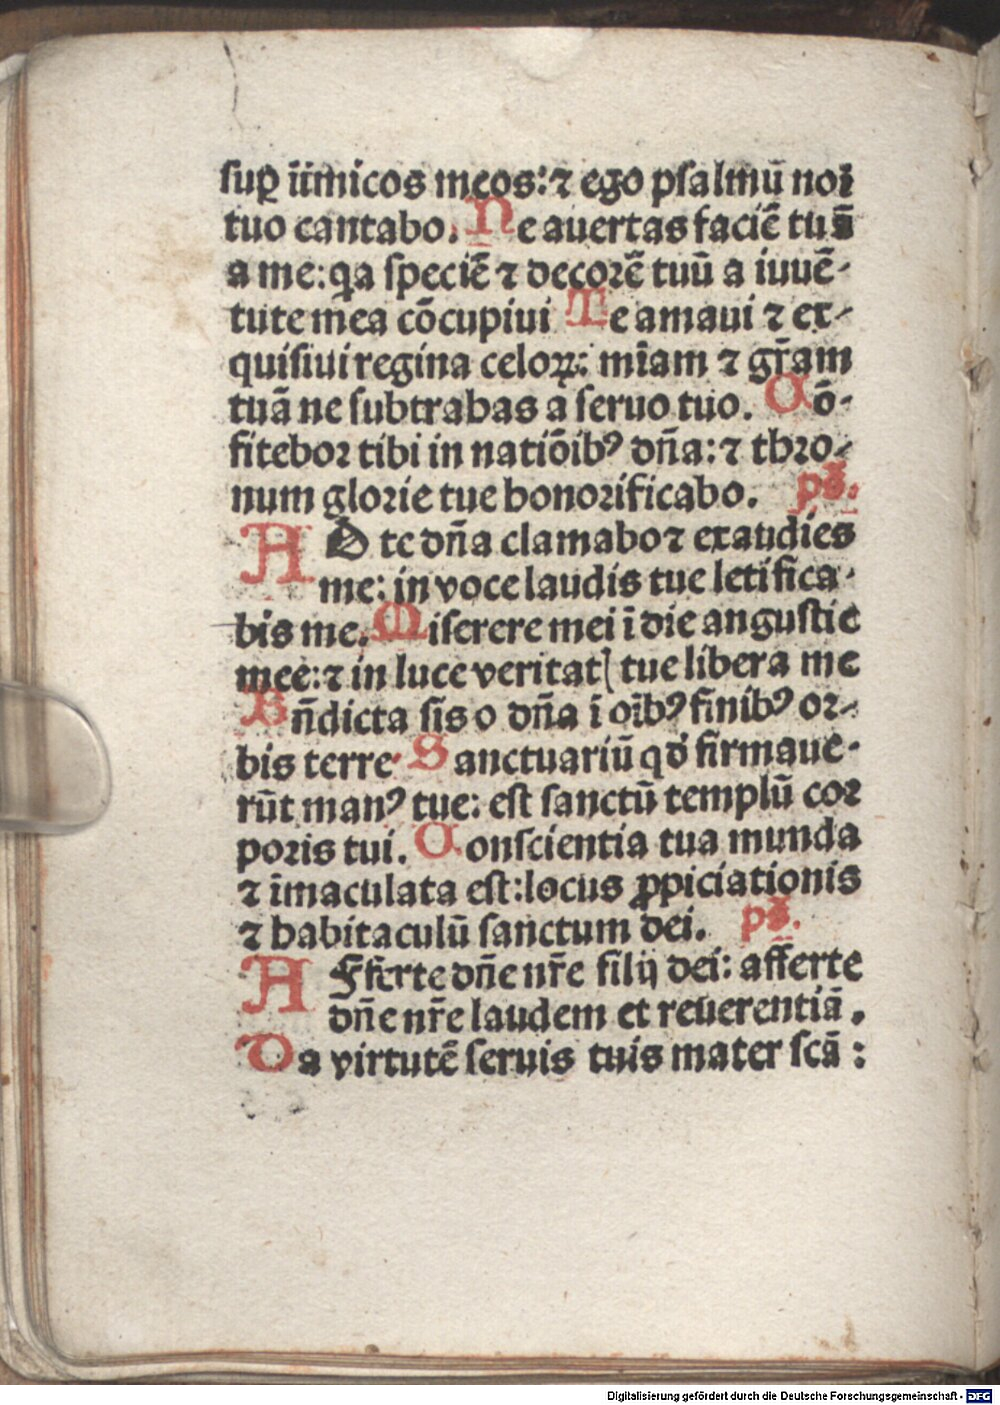 sup̲ iīmicos meos: ⁊ ego psalmū noī
tuo cantabo. Ne auertas faciē tuā
a me: qa speciē ⁊ decorē tuū a iuuē-
tute mea cōcupiui Te amaui ⁊ ex-
quisiui regina celoꝝ: mīam ⁊ gr̄am
tuā ne subtrahas a seruo tuo. Cō-
fitebor tibi in natiōibꝰ dn̄a: ⁊ thro-
num glorie tue honorificabo. ps̄.
AD te dn̄a clamabo ⁊ exaudies
me: in voce laudis tue letifica-
bis me. Miserere mei ī die angustie
mee: ⁊ in luce veritatꝭ tue libera me
Bn̄dicta sis o dn̄a ī oībꝰ finibꝰ or-
bis terre Sanctuariū qđ firmaue-
rūt manꝰ tue: est sanctū templū cor
poris tui. Conscientia tua munda
⁊ īmaculata est: locus ꝓpiciationis
⁊ habitaculū sanctum dei. ps̄.
AFferte dn̄e nr̄e filij dei: afferte
dn̄e nr̄e laudem et reuerentiā.
Da virtutē seruis tuis mater scā:
Digitalisierung gefördert durch die Deutsche Forschungsgemeinschaft - DFG